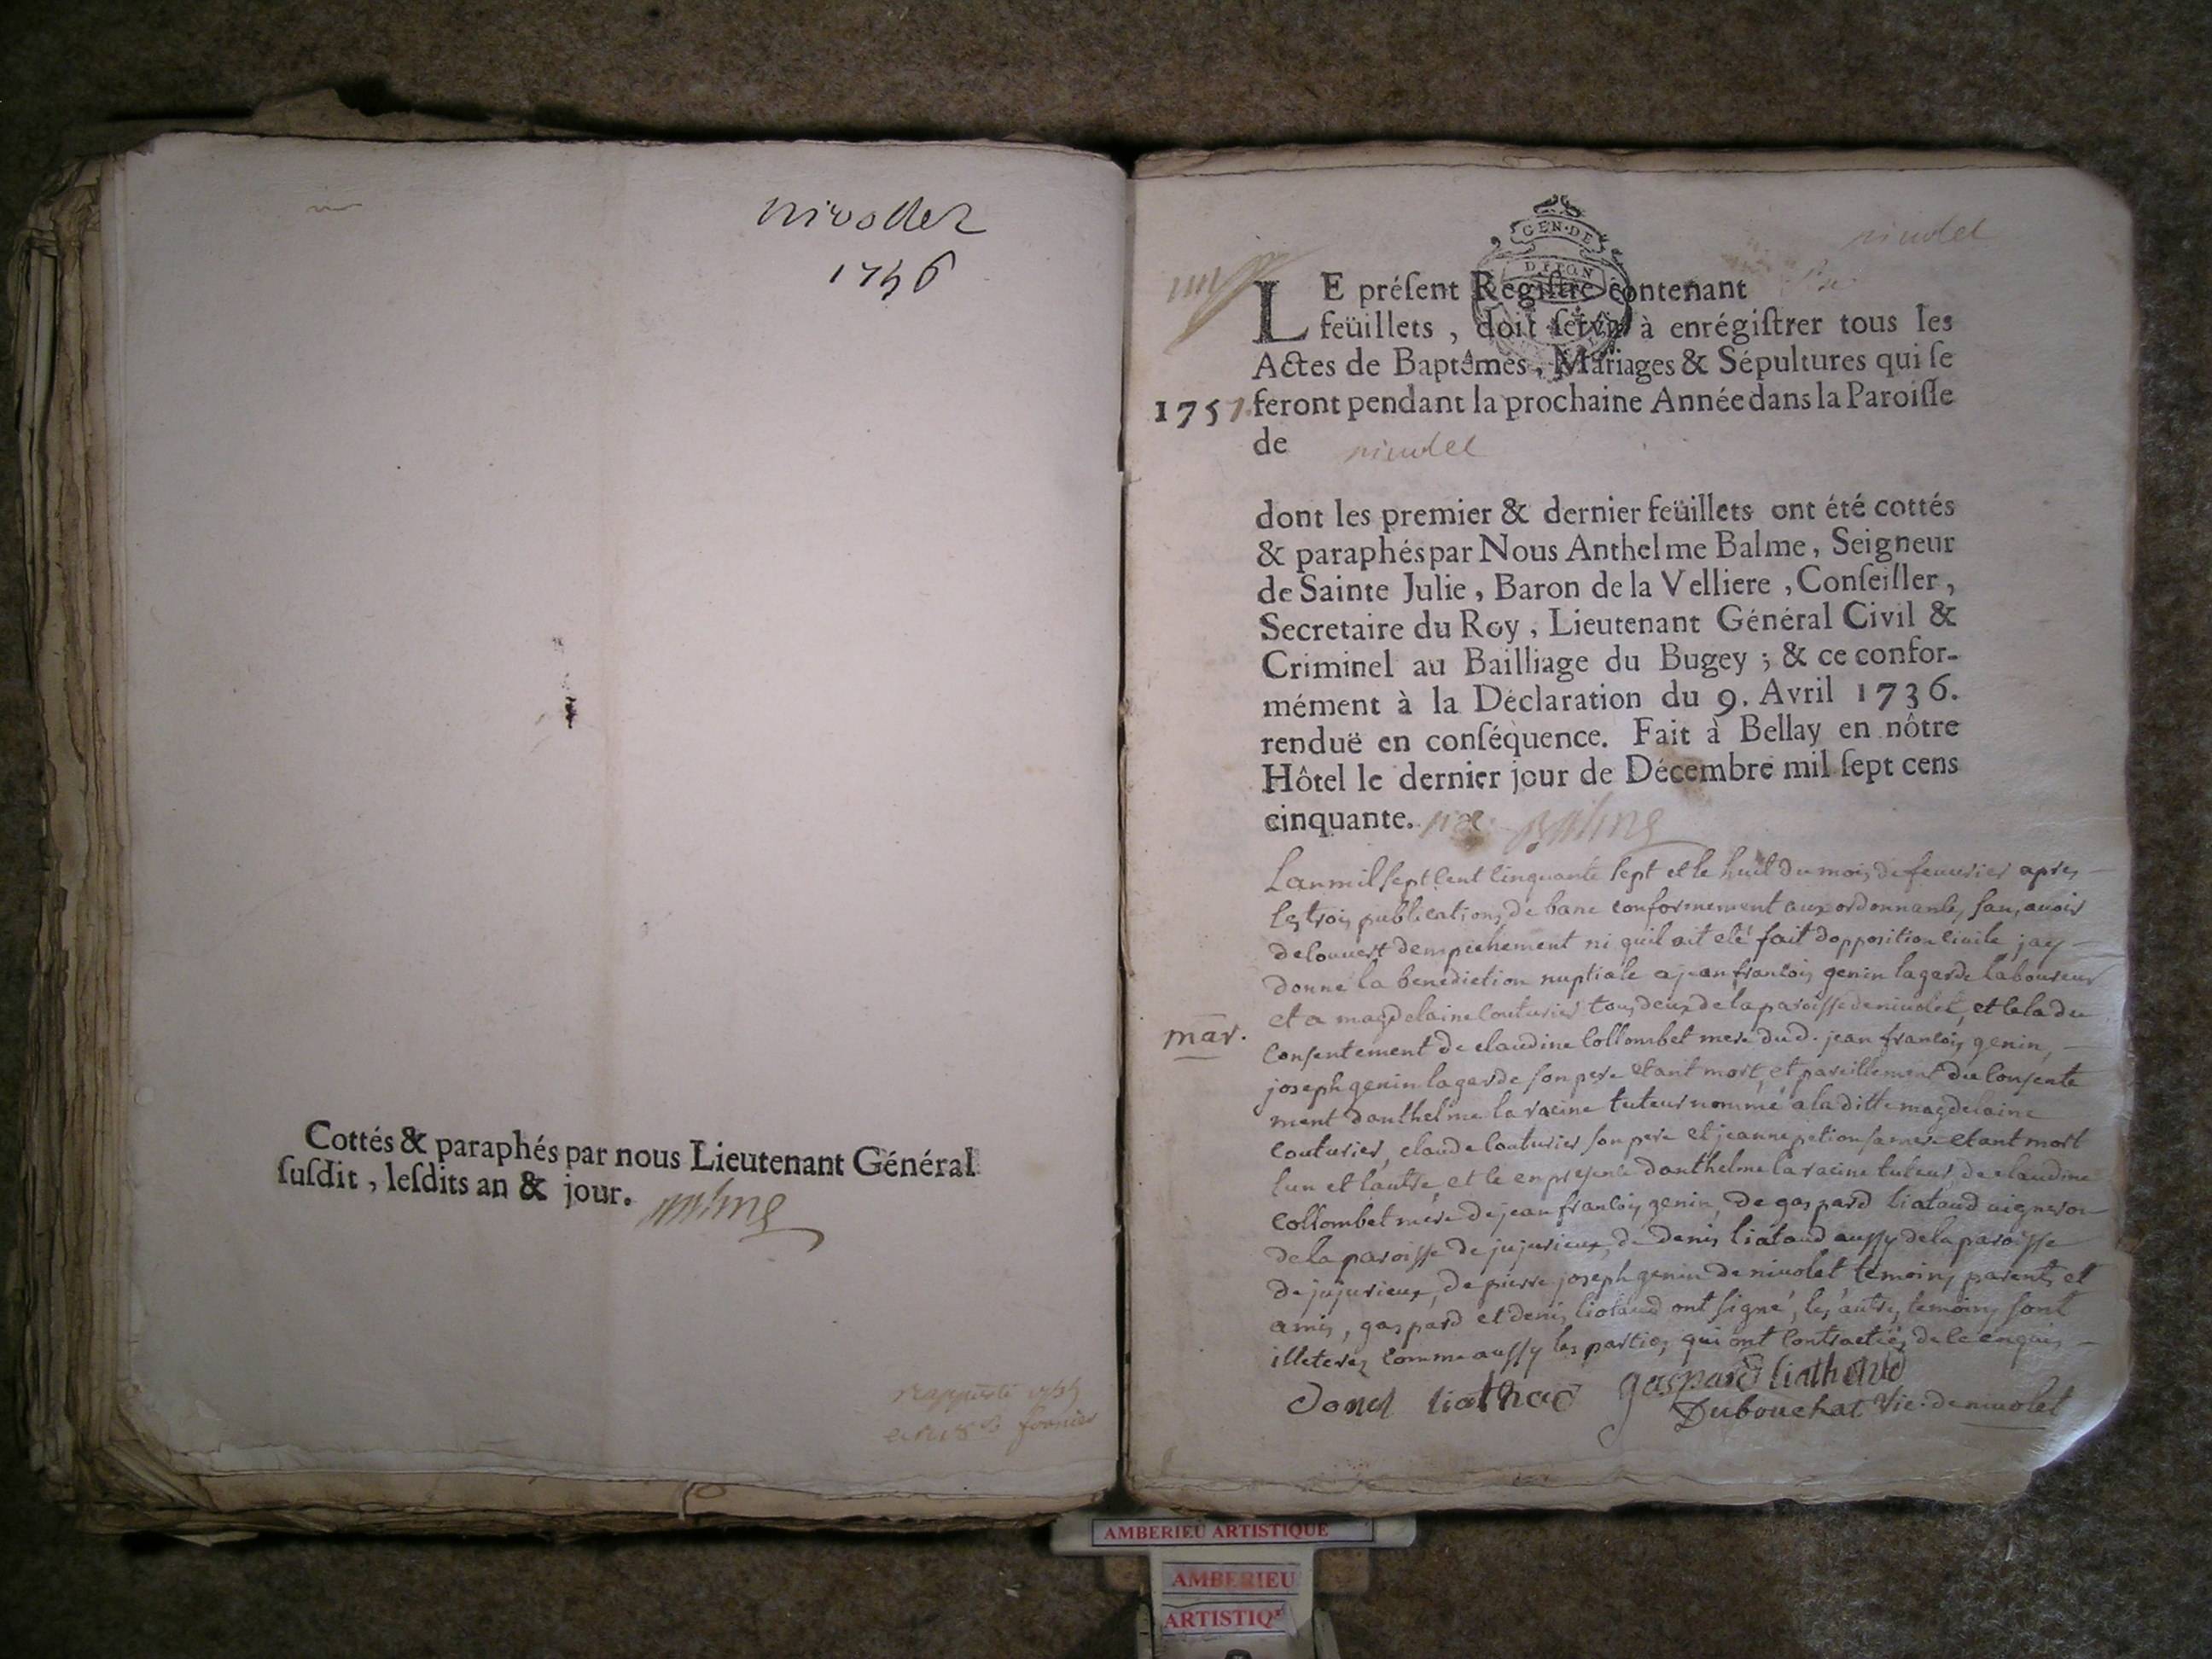 nivollet
1756
Cottés & paraphés par nous Lieutenant Général
ſuſdit, leſdits an & jour. Balme
rapporté
GEN·DE
DIJON
nivolet
LE préſent Regiſtre contenant
feüillets, doit ſervir à enrégiſtrer tous les
Actes de Baptêmes, Mariages & Sépultures qui ſe
1757. feront pendant la prochaine Année dans la Paroiſſe
de nivolet
dont les premier & dernier feüillets ont été cottés
& paraphés par Nous Anthelme Balme, Seigneur
de Sainte Julie, Baron de la Velliere, Conſeiller,
Secretaire du Roy, Lieutenant Général Civil &
Criminel au Bailliage du Bugey; & ce confor-
mément à la Déclaration du 9. Avril 1736.
renduë en conſéquence. Fait à Bellay en nôtre
Hôtel le dernier jour de Décembre mil ſept cens
cinquante. Balme
Lan mil sept cent cinquante sept et le huit du mois de feuurier apres
les trois publications de banc conformement aux ordonnances, sans auoir
decouuert dempechement ni quil ait eté fait dopposition ciuile jay
donne la benediction nuptiale a jean francois genin lagarde laboureur
et a magdelaine couturier tous deux de la paroisse de niuolet, et cela du
mar. consentement de claudine collombet mere du d. jean francois genin,
joseph genin lagarde son pere etant mort, et pareillement du consente
ment danthelme la racine tuteur nommé a la ditte magdelaine
couturier, claude couturier son pere et jeanne petion sa mere etant mort
lun et lautre, et ce en presence danthelme la racine tuteur, de claudine
collombet mere de jean francois genin, de gaspard liataud uigneron
de la paroisse de jujurieux, de denis liataud aussy de la paroisse
de jujurieux, de pierre joseph genin de niuolet temoins parents et
amis, gaspard et denis liotaud ont signé, les autres temoins sont
illeterez comme aussy les parties qui ont contractées de ce enquis
liathod gaspard liathoud
Dubouchat vic. de niuolet
AMBERIEU ARTISTIQUE
AMBERIEU
ARTISTIQ